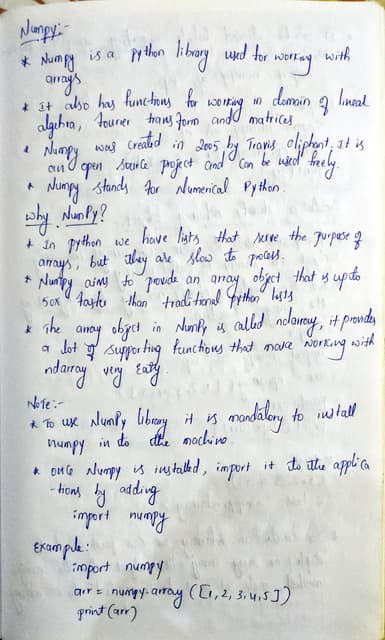 Numpy:-
* Numpy is a python library used for working with
arrays
* It also has functions for working in domain of lineal
algebra, fourier transform and matrices
* Numpy was created in 2005 by Travis oliphant. It is
an open source project and can be used freely.
* Numpy stands for Numerical Python.
Why NumPy?
* In python we have lists that serve the purpose of
arrays, but they are slow to process.
* NumPy aims to provide an array object that is upto
50x faster than traditional python lists
* The array object in NumPy is called ndarray, it provides
a lot of supporting functions that make working with
ndarray very Easy.
Note:-
* To use NumPy library it is mandatory to install
numpy in to the machine.
* once Numpy is installed, import it to the applica
-tions by adding
import numpy
Example:
import numpy
arr = numpy.array ([1, 2, 3, 4, 5])
print (arr)